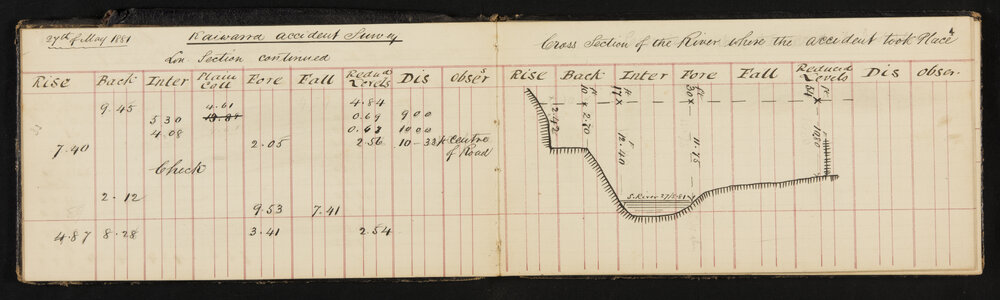 27th of May 1881 Kaiwarra accident Survey
Lon Section continued
Rise Back Inter Plain Coll Fore Fall Reduced Levels Dis Obser
9.45 4.61 4.84
5 30 0.69 9 0 0
4.08 0.63 10 0 0
7.40 2.05 2.56 Centre of Road
Check
2.12
9.53 7.41
4.87 8.28 3.41 2.54
Cross Section of the River where the accident took Place
Rise Back Inter Fore Fall Reduced Levels Dis Obser.
2.42
2.70
11.40
11.75
10.80
S. River 27/5.81